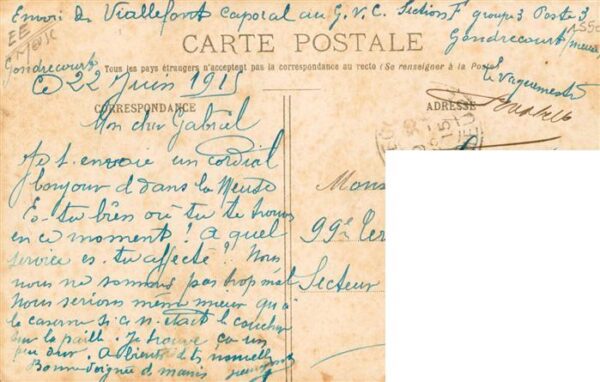 Envoi de Viallefont caporal au G.V.C. Section F groupe 3 Poste 3
Gondrecourt (Meuse)
EE
Meuse
CARTE POSTALE
Tous les pays étrangers n'acceptent pas la correspondance au recto (Se renseigner à la Poste)
Gondrecourt
Ce 22 Juin 1915
le Vaguemestre
CORRESPONDANCE
ADRESSE
Mon cher Gabriel
Je t'envoie un cordial
bonjour d dans la Meuse
Es-tu bien où tu te trouves
en ce moment ! A quel
service es-tu affecté ? Nous
nous ne sommes pas trop mal
Nous serions même mieux qu'à
la caserne si ce n'était le coucher
sur la paille. Je trouve ça un
peu dur. A bientôt d tes nouvelles
Bonne poignée de mains
Mons
99e Ter
Secteur